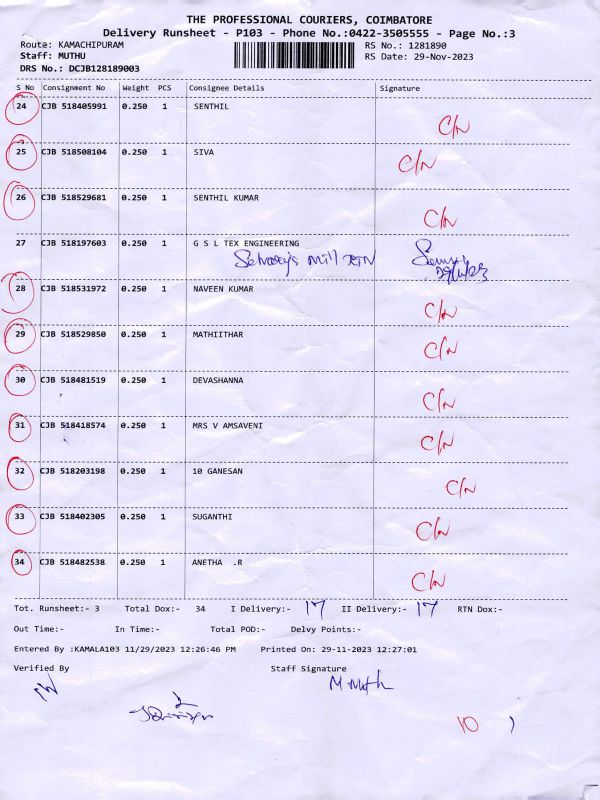 THE PROFESSIONAL COURIERS, COIMBATORE
Delivery Runsheet - P103 - Phone No.:0422-3505555 - Page No.:3
Route: KAMACHIPURAM RS No.: 1281890
Staff: MUTHU RS Date: 29-Nov-2023
DRS No.: DCJB128189003
S No Consignment No Weight PCS Consignee Details Signature
24 CJB 518405991 0.250 1 SENTHIL C/N
25 CJB 518508104 0.250 1 SIVA C/N
26 CJB 518529681 0.250 1 SENTHIL KUMAR C/N
27 CJB 518197603 0.250 1 G S L TEX ENGINEERING
mill
28 CJB 518531972 0.250 1 NAVEEN KUMAR C/N
29 CJB 518529850 0.250 1 MATHIITHAR C/N
30 CJB 518481519 0.250 1 DEVASHANNA C/N
31 CJB 518418574 0.250 1 MRS V AMSAVENI C/N
32 CJB 518203198 0.250 1 10 GANESAN C/N
33 CJB 518402305 0.250 1 SUGANTHI C/N
34 CJB 518482538 0.250 1 ANETHA .R C/N
Tot. Runsheet:- 3 Total Dox:- 34 I Delivery:- 17 II Delivery:- 17 RTN Dox:-
Out Time:- In Time:- Total POD:- Delvy Points:-
Entered By :KAMALA103 11/29/2023 12:26:46 PM Printed On: 29-11-2023 12:27:01
Verified By Staff Signature
M muth
10